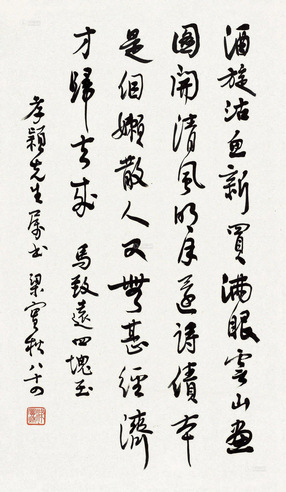 酒旋沽鱼新買满眼雲山畫
圖開清風明月還詩債本
是個嬾散人又無甚經濟
才歸去来 馬致遠四塊玉
孝穎先生属书 梁實秋八十四